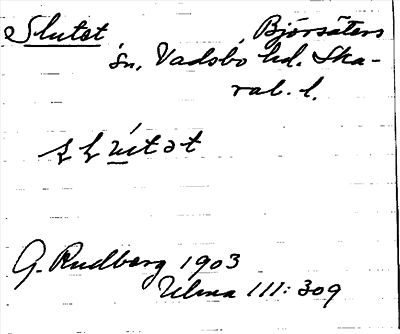 Slutet Björsäters
sn. Vadsbo hd. Ska-
rab. l.
G. Rudberg 1903
Ulma 111: 309